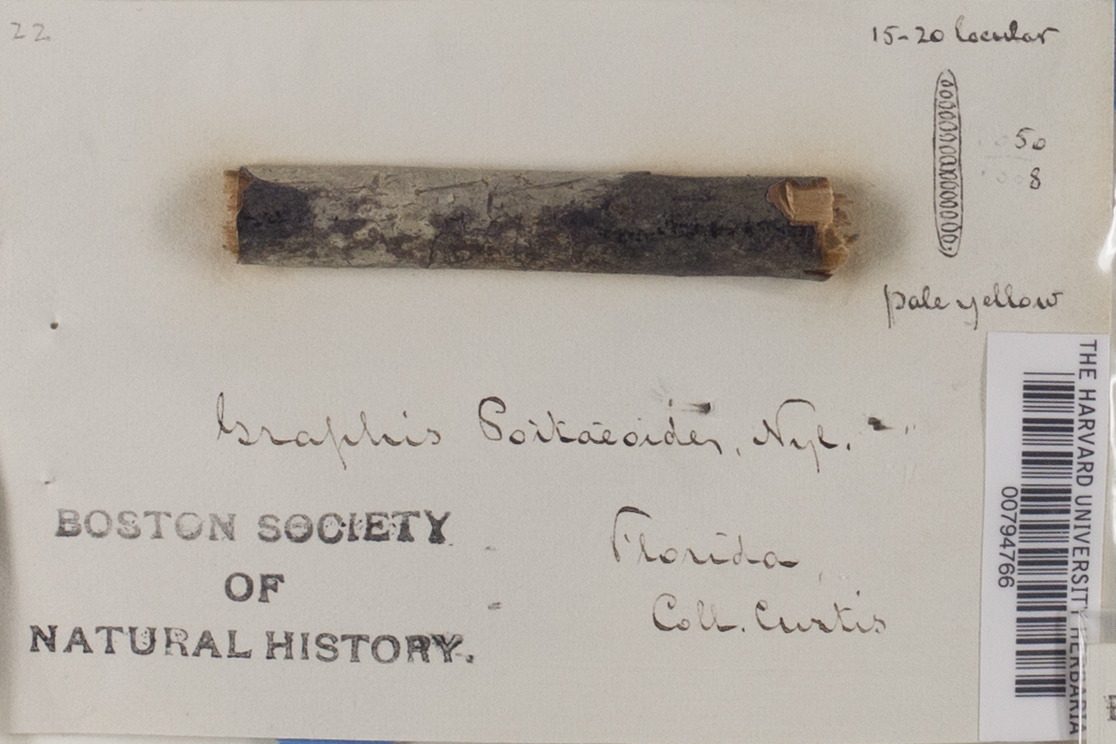 22
15-20 locular
50
8
pale yellow
Graphis Poitaeoides, Nyl.
BOSTON SOCIETY
OF
NATURAL HISTORY.
Florida,
Coll. Curtis
THE HARVARD UNIVERSITY HERBARIA
00794766